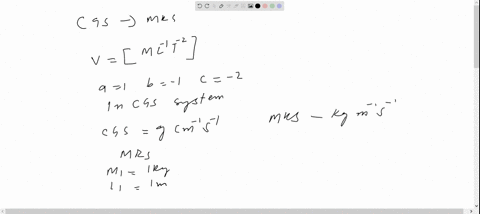 CGS → MKS
V = [ M L⁻¹ T⁻² ]
a = 1 b = -1 c = -2
In CGS system
CGS = g cm⁻¹ s⁻¹
MKS - kg m⁻¹ s⁻¹
MKS
M₁ = 1kg
L₁ = 1m